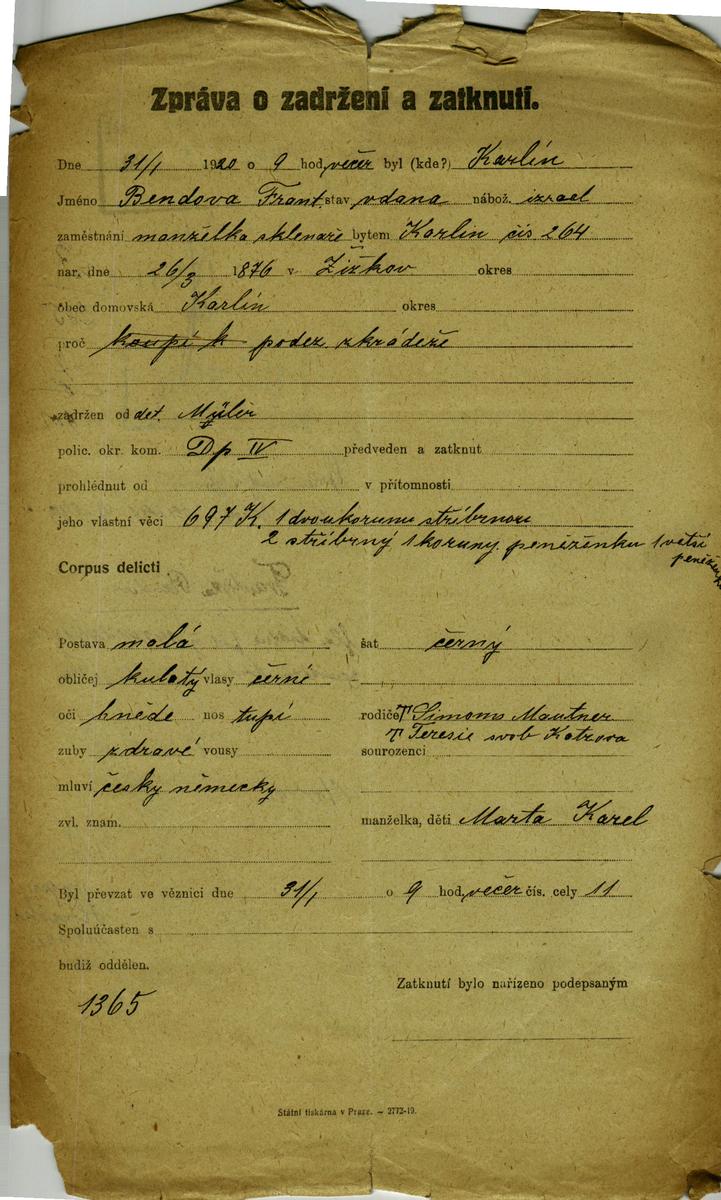 Zpráva o zadržení a zatknutí.
Dne 31/1 1920 o 9 hod. večer byl (kde?) Karlín
Jméno Bendova Frant. stav vdana nábož. izrael
zaměstnání manželka sklenaře bytem Karlin čis 264
nar. dne 26/3 1876 v Žižkov okres
obec domovská Karlín okres
proč koupi k podez. zkrádeže
zadržen od det. Müler
polic. okr. kom. Dp IV předveden a zatknut
prohlédnut od v přítomnosti
jeho vlastní věci 697 K. 1 dvoukorunu stříbrnou
2 stříbrný 1 koruny. peněženku 1 vetší
Corpus delicti
Postava malá šat černý
obličej kulatý vlasy černé
oči hněde nos tupí rodiče † Simoms Mautner
† Teresie svob Katzova
zuby zdravé vousy sourozenci
mluví česky německy
zvl. znam. manželka, děti Marta Karel
Byl převzat ve věznici dne 31/1 o 9 hod. večer čís. cely 11
Spoluúčasten s
budiž oddělen.
Zatknutí bylo nařízeno podepsaným
1365
Státní tiskárna v Praze. — 2772-19.